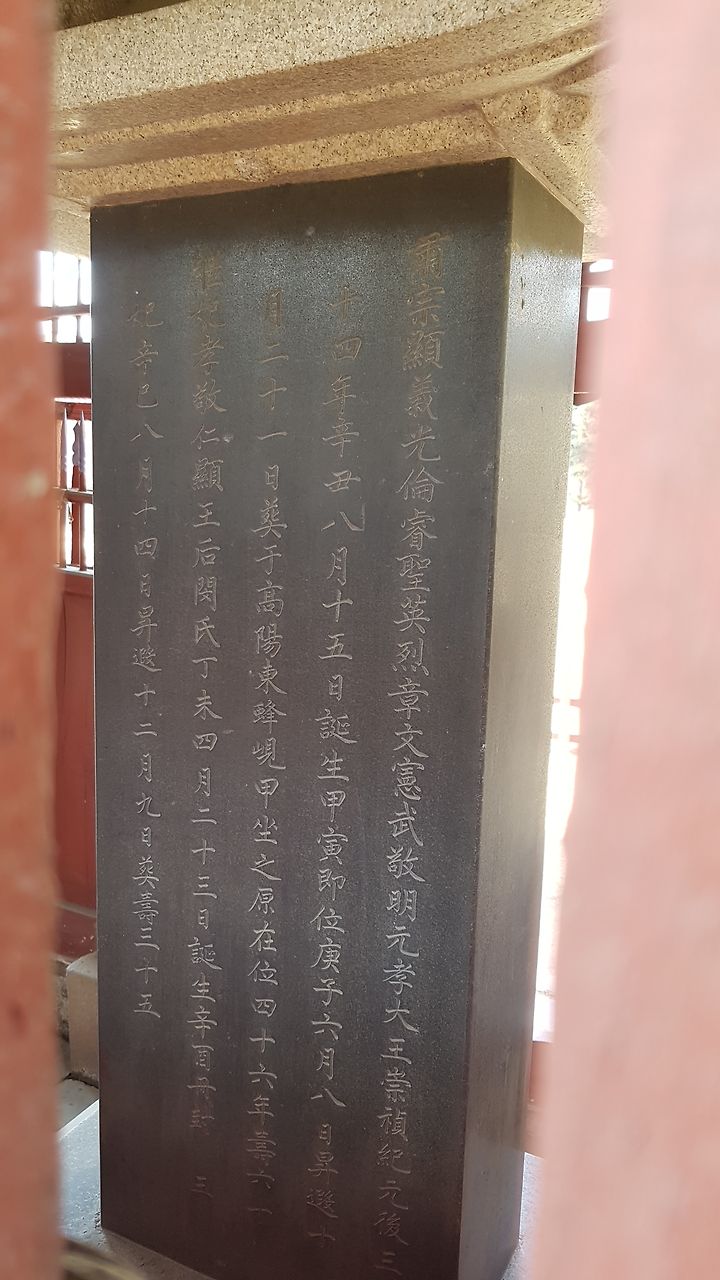 肅宗顯義光倫睿聖英烈章文憲武敬明元孝大王崇禎紀元後三
十四年辛丑八月十五日誕生甲寅即位庚子六月八日昇遐十
月二十一日葬于高陽東蜂峴甲坐之原在位四十六年壽六十
繼妃孝敬仁顯王后閔氏丁未四月二十三日誕生辛酉冊封 三
妃辛巳八月十四日昇遐十二月九日葬壽三十五